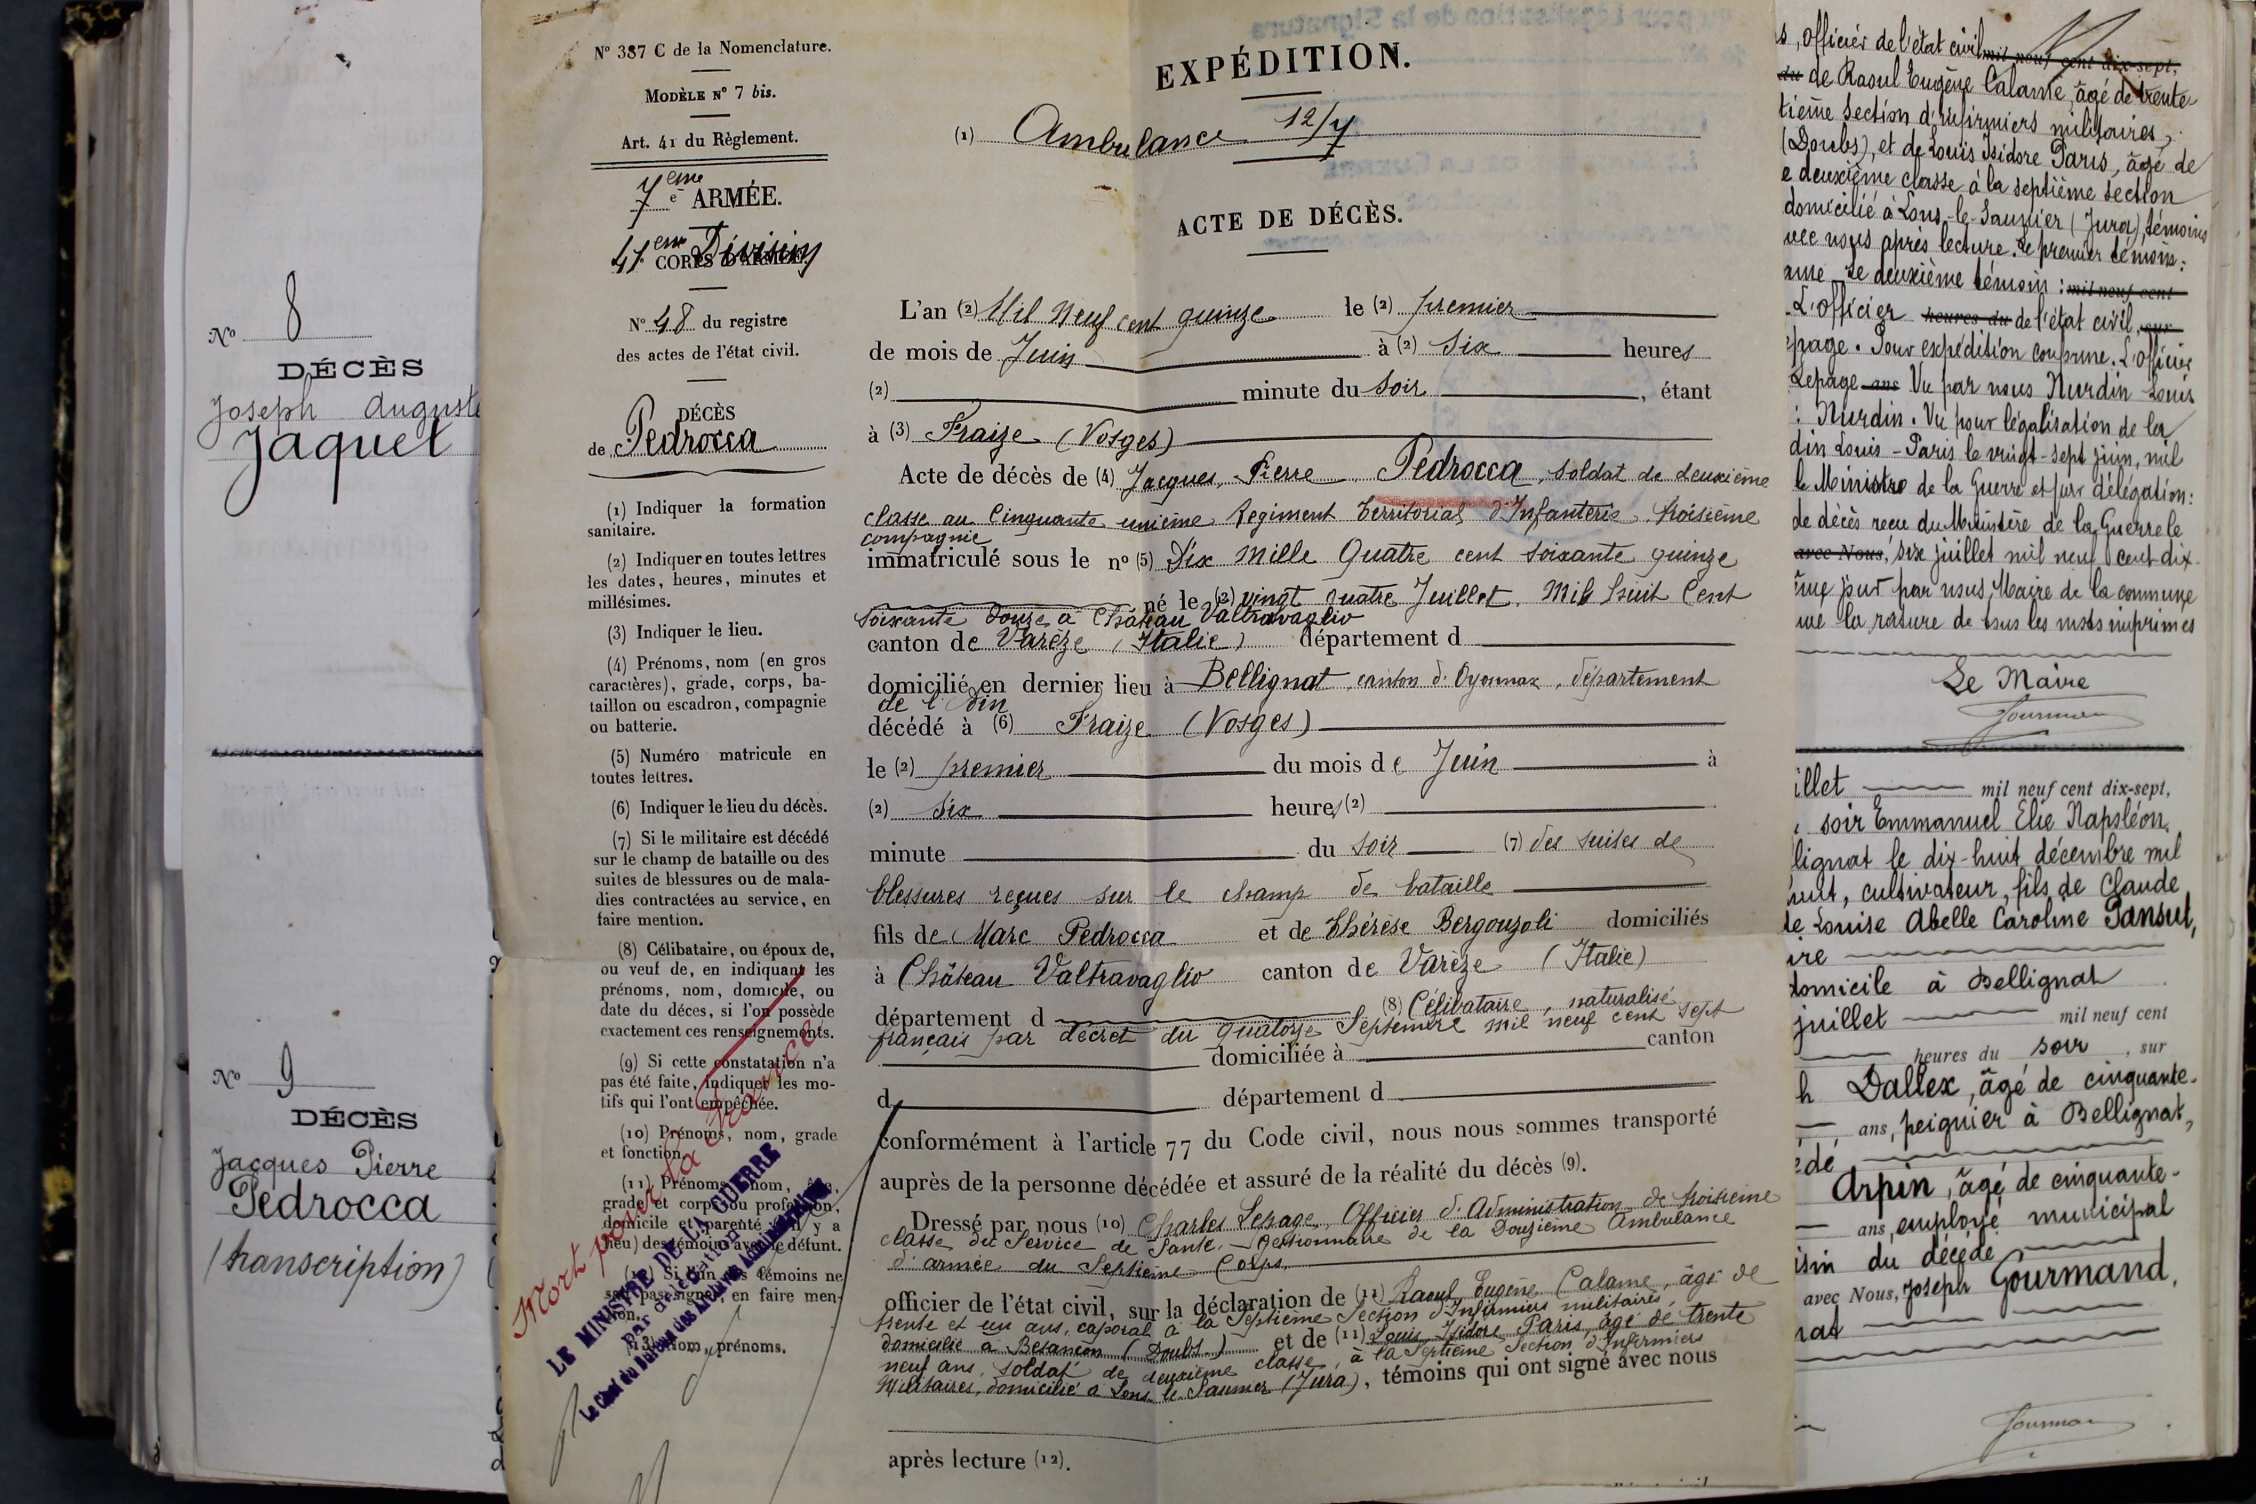 Nº 8
DÉCÈS
Joseph Auguste
Jaquet
Nº 9
DÉCÈS
Jacques Pierre
Pedrocca
(transcription)
Nº 387 C de la Nomenclature.
MODÈLE Nº 7 bis.
Art. 41 du Règlement.
7eme e ARMÉE.
41eme Division
CORPS D'ARMÉE.
Nº 48 du registre
des actes de l'état civil.
DÉCÈS
de Pedrocca
(1) Indiquer la formation
sanitaire.
(2) Indiquer en toutes lettres
les dates, heures, minutes et
millésimes.
(3) Indiquer le lieu.
(4) Prénoms, nom (en gros
caractères), grade, corps, ba-
taillon ou escadron, compagnie
ou batterie.
(5) Numéro matricule en
toutes lettres.
(6) Indiquer le lieu du décès.
(7) Si le militaire est décédé
sur le champ de bataille ou des
suites de blessures ou de mala-
dies contractées au service, en
faire mention.
(8) Célibataire, ou époux de,
ou veuf de, en indiquant les
prénoms, nom, domicile, ou
date du déces, si l'on possède
exactement ces renseignements.
(9) Si cette constatation n'a
pas été faite, indiquer les mo-
tifs qui l'ont empêchée.
(10) Prénoms, nom, grade
et fonction.
(11) Prénoms, nom,
grade et corps ou profession,
domicile et parenté y a
lieu) des témoins avec le défunt.
témoins ne
en faire men-
tion.
(13) Nom, prénoms.
Mort pour la France
LE MINISTRE DE LA GUERRE
par délégation
Le Chef du Bureau des Archives Administratives
EXPÉDITION.
(1) Ambulance 12/7
ACTE DE DÉCÈS.
L'an (2) Mil Neuf cent quinze le (2) premier
de mois de Juin à (2) six heures
(2) minute du soir, étant
à (3) Fraize (Vosges)
Acte de décès de (4) Jacques, Pierre Pedrocca, soldat de deuxième
classe au Cinquante unième Régiment Territorial d'Infanterie, troisième
compagnie
immatriculé sous le nº (5) Dix Mille Quatre cent soixante quinze
né le (2) vingt quatre Juillet, Mil huit Cent
soixante douze à Château Valtravaglio
canton de Varèze (Italie) département d
domicilié en dernier lieu à Bellignat, canton d'Oyonnax, département
de l'Ain
décédé à (6) Fraize (Vosges)
le (2) premier du mois de Juin à
(2) six heures (2)
minute du soir (7) des suites de
blessures reçues sur le champ de bataille
fils de Marc Pedrocca et de Thérèse Bergonzoli domiciliés
à Château Valtravaglio canton de Varèze (Italie)
département d (8) Célibataire, naturalisé
français par décret du quatorze Septembre mil neuf cent sept
domiciliée à canton
d département d
conformément à l'article 77 du Code civil, nous nous sommes transporté
auprès de la personne décédée et assuré de la réalité du décès (9).
Dressé par nous (10) Charles Lepage, Officier d'Administration de troisième
classe du Service de Santé, Gestionnaire de la Douzième Ambulance
d'armée du Septième Corps,
officier de l'état civil, sur la déclaration de (11) Raoul Eugène Calame, âgé de
trente et un ans, caporal à la Septième Section d'Infirmiers militaires
domicilié à Besançon (Doubs) et de (11) Louis Isidore Paris, âgé de trente
neuf ans, soldat de deuxième classe, à la Septième Section d'Infirmiers
Militaires, domicilié à Lons le Saunier (Jura), témoins qui ont signé avec nous
après lecture (12).
s, officier de l'état civil mil neuf cent dix-sept,
du de Raoul Eugène Calame, âgé de trente
tième section d'infirmiers militaires,
(Doubs), et de Louis Isidore Paris, âgé de
e deuxième classe à la septième section
domicilié à Lons-le-Saunier (Jura), témoins
vec nous après lecture. Le premier témoin:
ame Le deuxième témoin: mil neuf cent
L'officier heures du de l'état civil, sur
epage. Pour expédition conforme. L'officier
Lepage ans Vu par nous Nurdin Louis
: Nurdin. Vu pour légalisation de la
din Louis - Paris le vingt-sept juin, mil
le Ministre de la Guerre et par délégation:
de décès reçu du Ministère de la Guerre le
avec Nous, six juillet mil neuf cent dix-
ême jour par nous, Maire de la commune
vé la rature de tous les mots imprimés
Le Maire
Gourman
illet mil neuf cent dix-sept,
soir Emmanuel Elie Napoléon,
lignat le dix-huit décembre mil
huit, cultivateur, fils de Claude
de Louise Abelle Caroline Pansut,
ire
domicile à Bellignat
juillet mil neuf cent
heures du soir, sur
h Dallex, âgé de cinquante-
ans, peignier à Bellignat,
édé
Arpin, âgé de cinquante-
ans, employé municipal
isin du décédé
avec Nous, Joseph Gourmand,
nat
Gourman